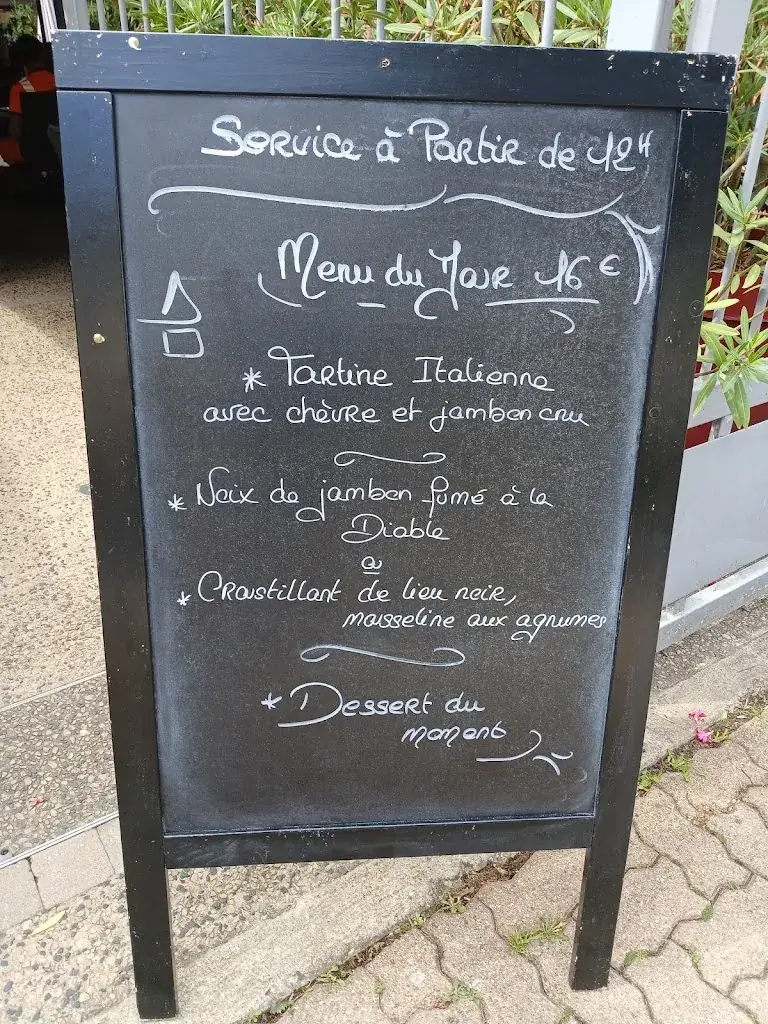 Service à Partir de 12H
Menu du Jour 16€
* Tartine Italienne
avec chèvre et jambon cru
* Noix de jambon fumé à la
Diable
ou
* Croustillant de lieu noir,
mousseline aux agrumes
* Dessert du
moment